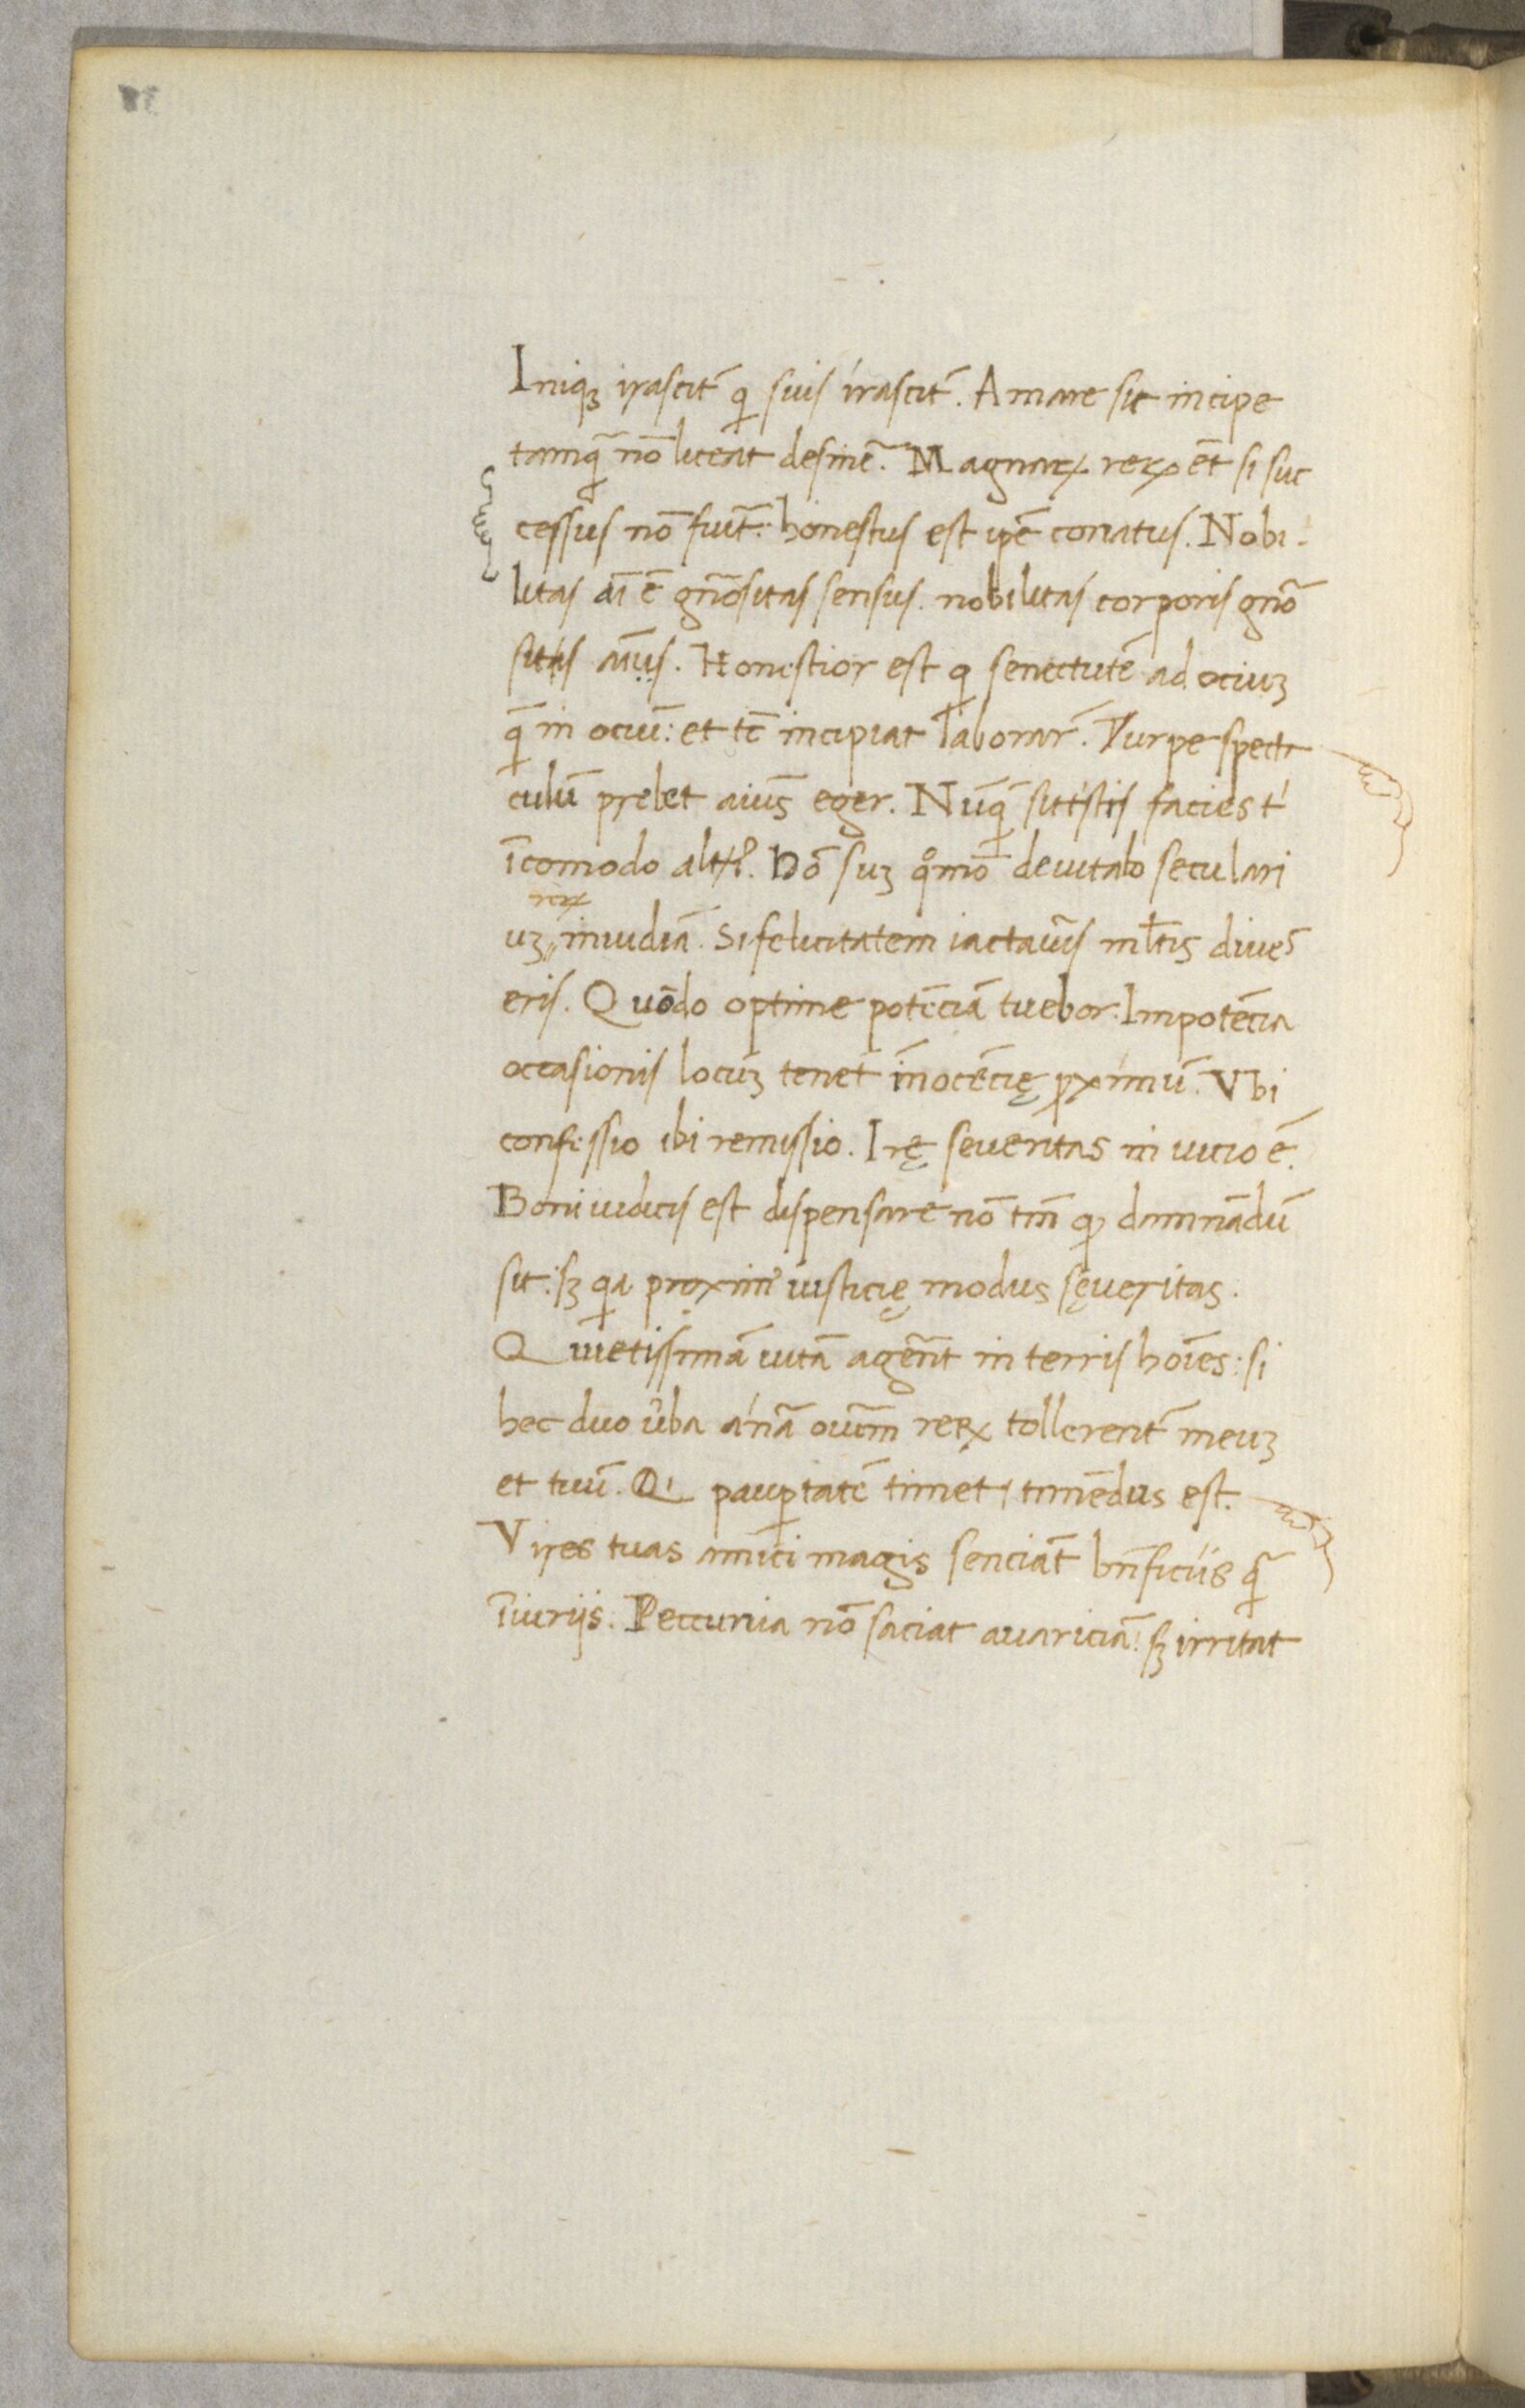 Iniqꝫ irascit᷑ qͥ suis irascit᷑. Amare sic incipe
tamq̄ nō liceat desinē. Magnaꝝ reꝝ et̄ si suc
cessus nō fuīt: honestus est ip̄e conatus. Nobi-
litas ai̅ ē gn̄ositas sensus. nobilitas corporis gn̄o
sitas aīus. Honestior est qͥ senectutē ad ociuꝫ
q̄ in ociū: et tc̄ incipiat laborar̄. Turpe specta
culū prebet aiu̅s eger. Nūq̄ sat iustis facies t'
īcomodo alt'i'. Dō suꝫ qͦmō deuitabo seculari
reꝝ
uꝫ inuidiā. Si felicitatem iactau̅is ml̄tis diues
eris. Quōdo optime potēciā tuebor: Impotēcia
occasionis locuꝫ tenet īnocēcię ꝓximū. Vbi
confessio ibi remissio. Irę seueritas in uicio ē.
Boni iudicis est dispensare nō tm̄ qͩ damnādū
sit: sꝫ qͥa proxim' iusticię modus sęueritas.
Quietissimā uitā agen̄t in terris hoīes: si
hec duo u̅ba a nā ouīm reꝝ tollerent᷑ meuꝫ
et tuū. Qui paup̱tatē timet, timēdus est.
Vires tuas amici magis senciāt bn̄ficiis q̄
īiuriis. Peccunia nō saciat auariciā: sꝫ irritat